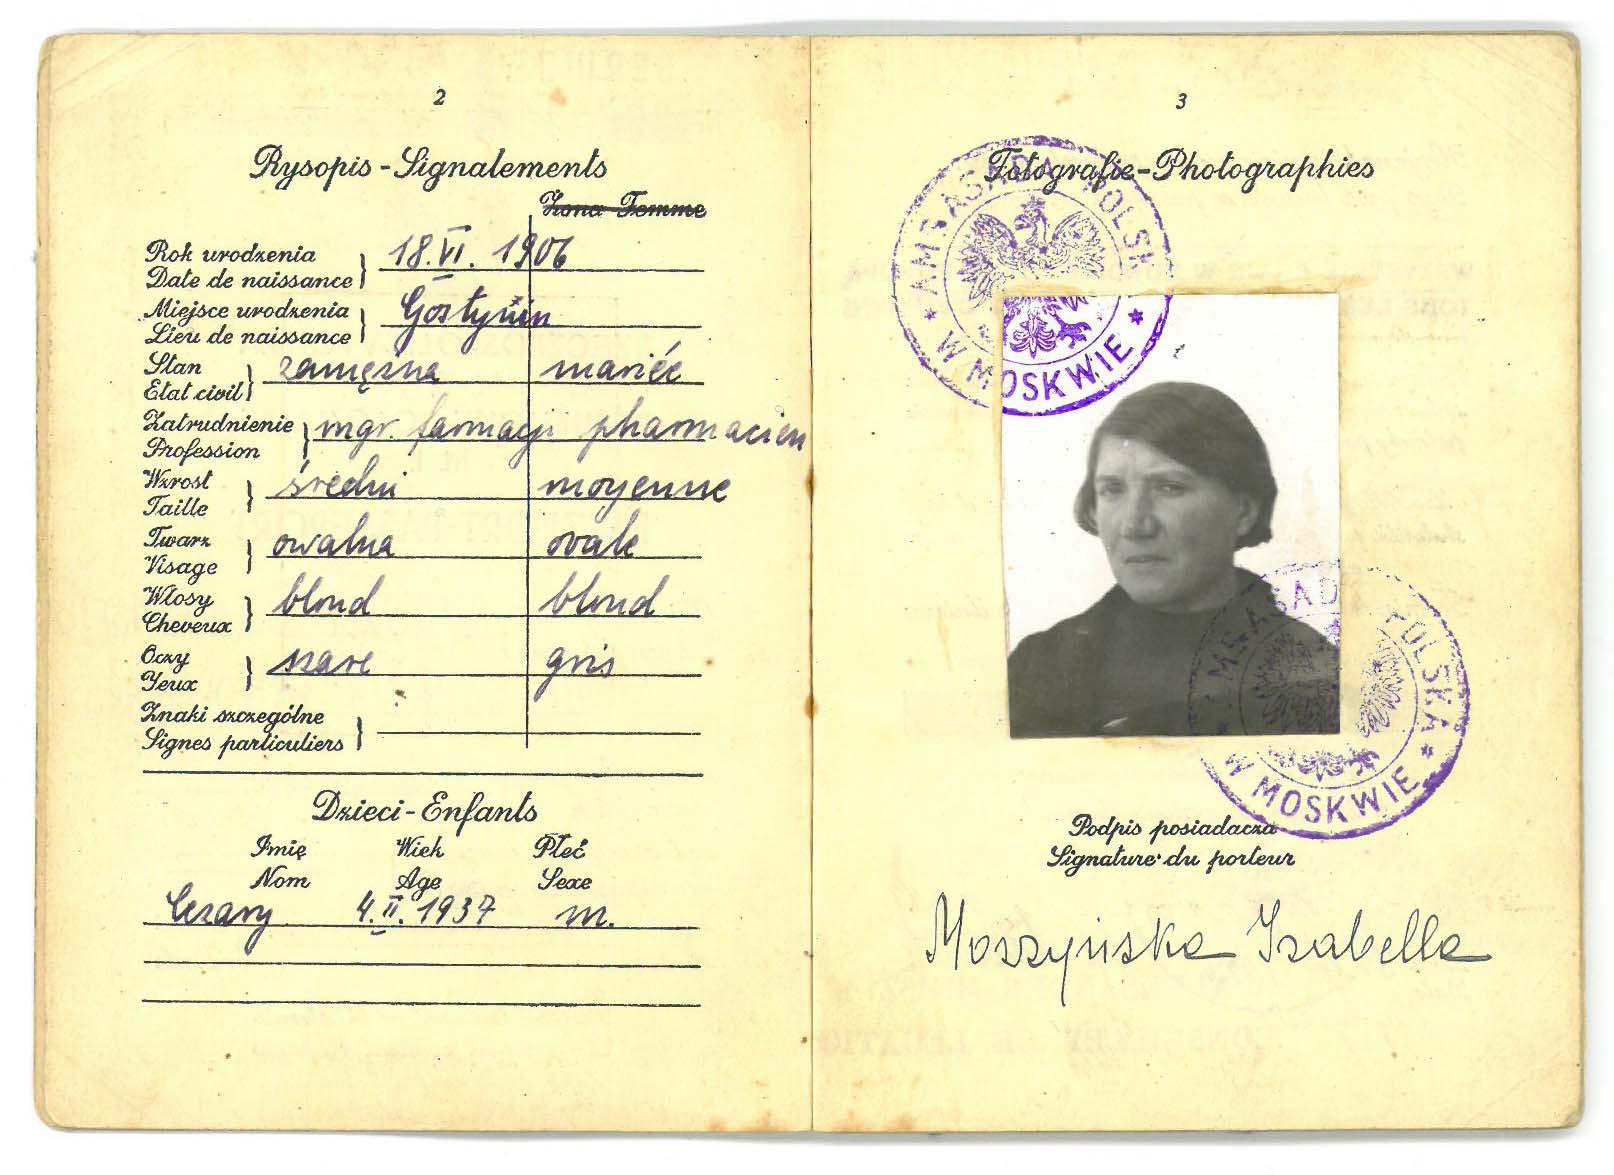 2
Rysopis - Signalements
Żona Femme
Rok urodzenia
Date de naissance
18.VI. 1906
Miejsce urodzenia
Lieu de naissance
Gostynin
Stan
Etat civil
zamężna mariée
Zatrudnienie
Profession
mgr. farmacji pharmacien
Wzrost
Taille
średni moyenne
Twarz
Visage
owalna ovale
Włosy
Cheveux
blond blond
Oczy
Yeux
szare gris
Znaki szczególne
Signes particuliers
Dzieci - Enfants
Imię Wiek Płeć
Nom Age Sexe
Cezary 4.II.1937 m.
3
Fotografie - Photographies
AMBASADA POLSKA
* W MOSKWIE *
AMBASADA POLSKA
* W MOSKWIE *
Podpis posiadacza
Signature du porteur
Moszyńska Izabella